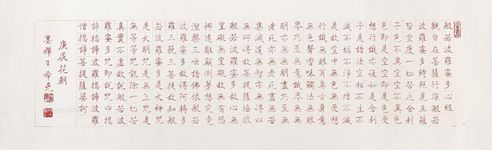 般若波羅蜜多心經
觀自在菩薩行深般若
波羅蜜多時照見五蘊
皆空度一切苦厄舍利
子色不異空空不異色
色即是空空即是色受
想行識亦復如是舍利
子是諸法空相不生不
滅不垢不淨不增不減
是故空中無色無受想
行識無眼耳鼻舌身意
無色聲香味觸法無眼
界乃至無意識界無無
明亦無無明盡乃至無
老死亦無老死盡無苦
集滅道無智亦無得以
無所得故菩提薩埵依
般若波羅蜜多故心無
罣礙無罣礙故無有恐
怖遠離顛倒夢想究竟
涅槃三世諸佛依般若
波羅蜜多故得阿耨多
羅三藐三菩提故知般
若波羅蜜多是大神咒
是大明咒是無上咒是
無等等咒能除一切苦
真實不虛故說般若波
羅蜜多咒即說咒曰揭
諦揭諦波羅揭諦波羅
僧揭諦菩提薩婆訶
庚辰花朝